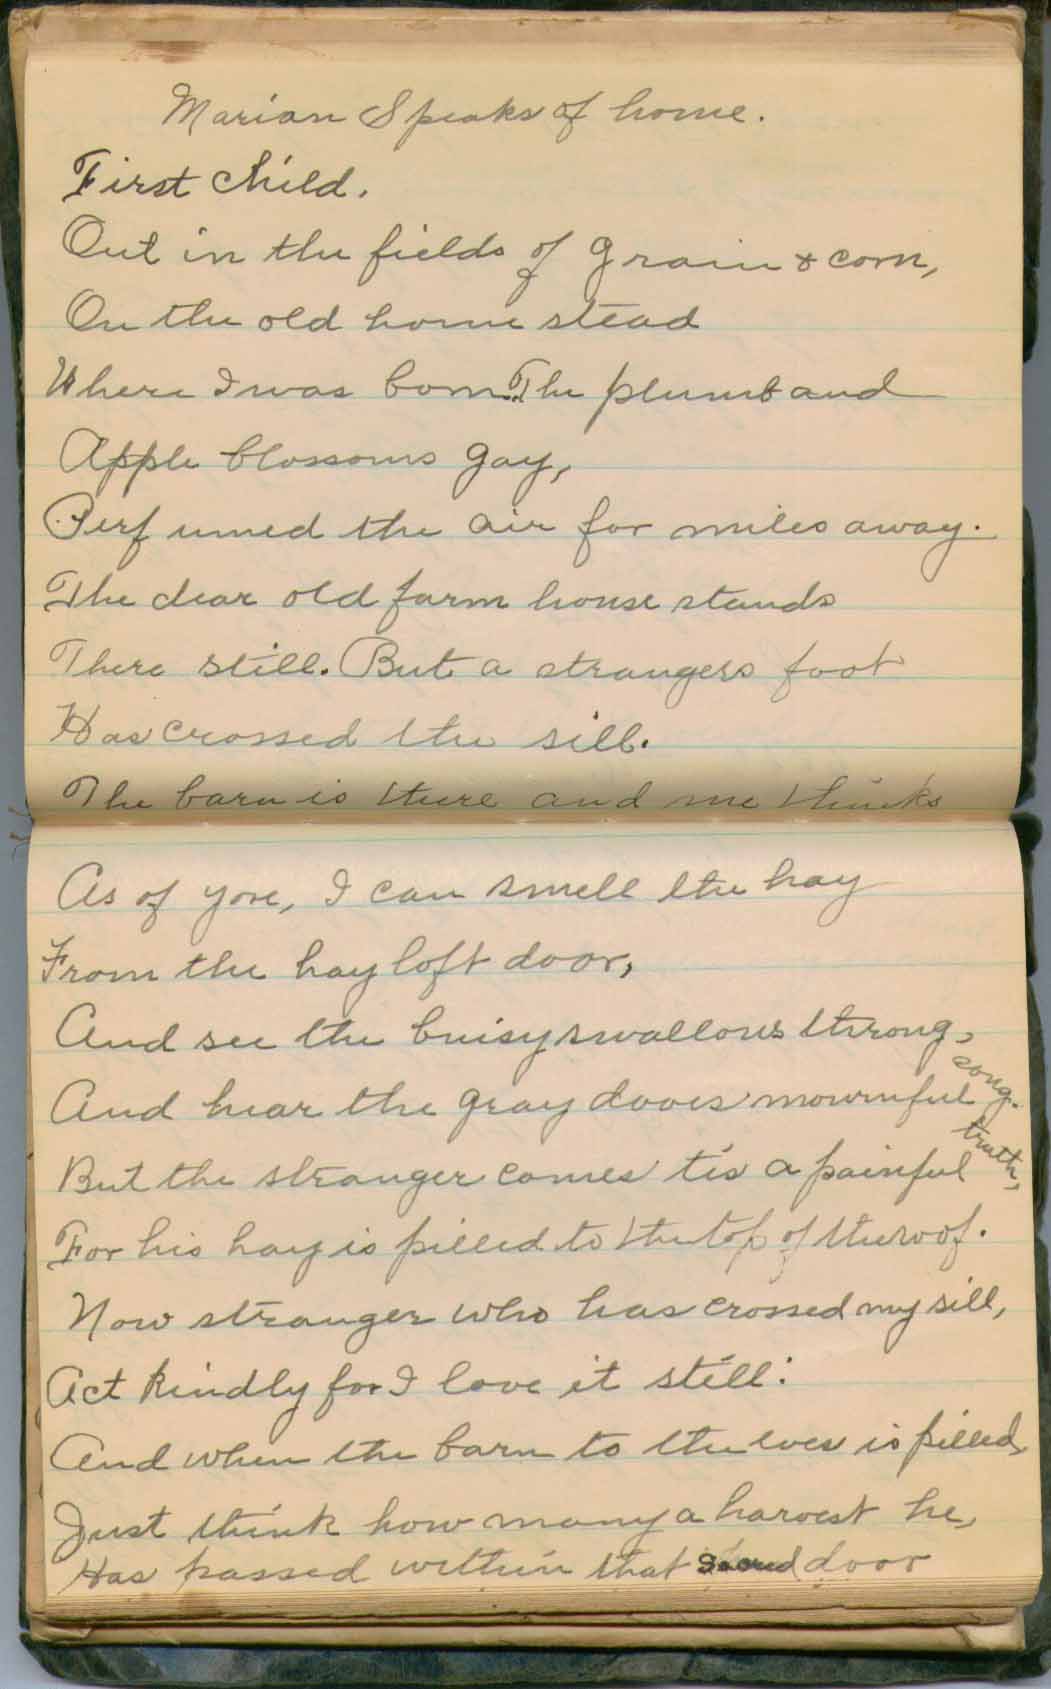 Marian Speaks of home.
First child.
Out in the fields of grain & corn,
On the old home stead
Where I was born. The plumb and
Apple blossoms gay,
Perfumed the air for miles away.
The dear old farm house stands
There still. But a strangers foot
Has crossed the sill.
The barn is there and me thinks
As of yore, I can smell the hay
From the hay loft door,
And see the buisy swallows throng,
And hear the gray doves mournful song.
But the stranger comes tis a painful truth,
For his hay is pilled to the top of the roof.
Now stranger who has crossed my sill,
Act kindly for I love it still.
And when the barn to the eves is filled,
Just think how many a harvest he,
Has passed within that sacred door